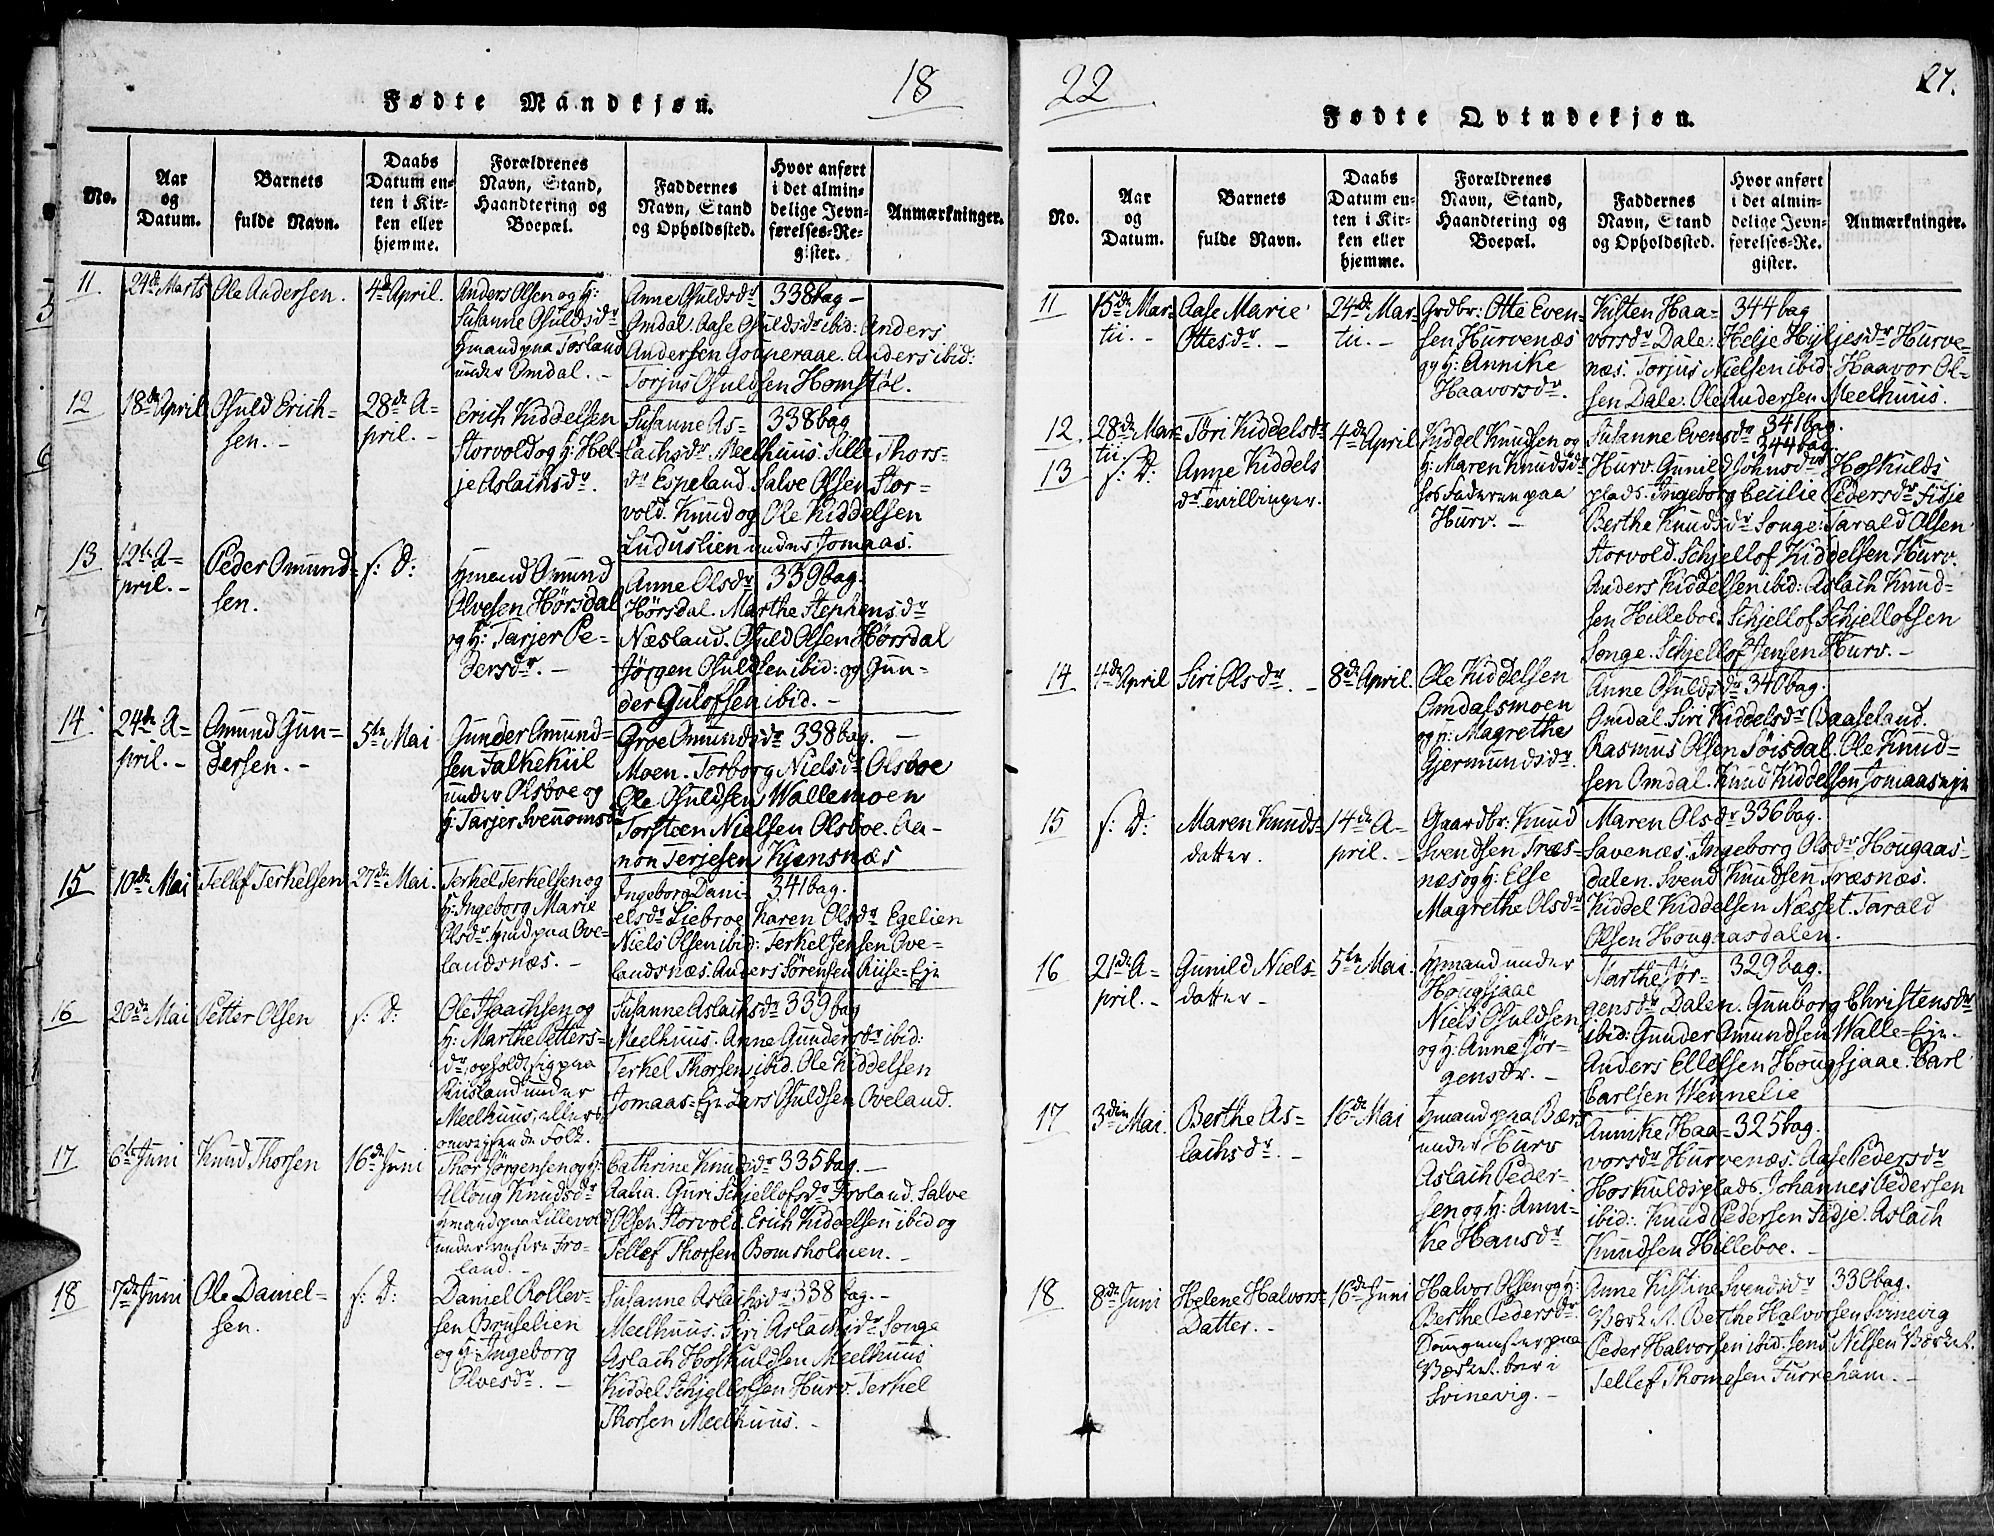 18
Fødte Mandkjøn.
No.
Aar
og
Datum.
Barnets
fulde Navn.
Daabs
Datum en-
ten i Kir-
ken eller
hjemme.
Forældrenes
Navn, Stand,
Haandtering og
Boepæl.
Faddernes
Navn, Stand
og Opholdssted.
Hvor anført
i det almin-
delige Jevn-
førelses-Re-
gister.
Anmærkninger.
11
24de Marts
Ole Andersen.
4de April.
Anders Olsen og H:
Susanne Osuldsdr
Hmand paa Torsland
under Omdal. -
Anne Osuldsdr 338 bag -
Omdal. Aase Osuldsdr ibid: Anders
Andersen Gouperaae. Anders ibid:
Torjus Osuldsen Homstøl.
12
18de April
Osuld Erich-
sen. -
28de A-
pril. -
Erich Kiddelsen
Storvold og H: Hel-
je Aslachsdr.
Susanne As- 338 bag
lachsdr Meelhuus. Sille Thors-
dr Espeland Salve Olsen Stor-
vold. Knud og Ole Kiddelsen
Luduslien under Jomaas.
13
12te A-
pril. -
Peder Omund-
sen.
s: D:
Hmand Omund
Olvesen Hørsdal
og H: Tarjer Pe-
dersdr. -
Anne Olsdr 339 bag.
Hørsdal. Marthe Stephensdr
Næsland. Osuld Olsen Hørsdal
Jørgen Osuldsen ibid: og Gun-
der Gulofsen ibid. -
14
24de A-
pril. -
Omund Gun-
dersen. -
5te Mai
Gunder Omund-
sen Falkekiil
under Olsboe og
H: Tarjer Svenomsdr
Groe Omundsdr 338 bag. -
Moen. Torborg Nielsdr Olsboe
Ole Osuldsen Wallemoen
Torsteen Nielsen Olsboe. Aa-
non Terjesen Kiensnæs
15
10de Mai
Tellef Terkelsen
27de Mai.
Terkel Terkelsen og
H: Ingeborg Marie
Olsdr. Hmd paa Ove-
landsnæs. -
Ingeborg Dani- 341 bag.
elsdr Liebroe Karen Olsdr Egelien
Niels Olsen ibid: Terkel Jensen Ove-
landsnæs. Anders Sørensen Riise-Eje
16
20de Mai
Petter Olsen
s: D:
Ole Isaachsen og
H: Marthe Petters-
dr, opholdt sig paa
Risland under
Meelhuus, ellers
omreisende Folk.
Susanne Aslachsdr 339 bag
Meelhuus. Anne Gundersdr ibid:
Terkel Thorsen ibid. Ole Kiddelsen
Jomaas-Eje Lars Osuldsen Oveland.
17
6te Juni
Knud Thorsen
16de Juni
Thor Jørgensen og H:
Alloug Knudsdr
Hmand paa Lillevold
under Fro-
land. -
Cathrine Knudsdr 335 bag. -
Aalia. Guri Schjellofsdr Froland. Salve
Olsen Storvold. Erich Kiddelsen ibid og
Tellef Thorsen Bomsholmen. -
18
7de Juni
Ole Daniel-
sen.
s: D:
Daniel Rollev-
sen Bruselien
og H: Ingeborg
Olvesdr. -
Susanne Aslachsdr 338 bag. -
Meelhuus. Siri Aslachsdr Songe
Aslach Hoskuldsen Meelhuus
Kiddel Schjellofsen Hurv. Terkel
Thorsen Meelhuus. -
22
27.
Fødte Qvindekjøn.
No.
Aar
og
Datum.
Barnets
fulde Navn.
Daabs
Datum en-
ten i Kir-
ken eller
hjemme.
Forældrenes
Navn, Stand,
Haandtering og
Boepæl.
Faddernes
Navn, Stand
og Opholdssted.
Hvor anført
i det almin-
delige Jevn-
førelses-Re-
gister.
Anmærkninger.
11
15de Mar-
tii. -
Aase Marie
Ottesdr. -
24de Mar-
tii. -
Grdbr: Otte Even-
sen Hurvenæs
og H: Annike
Haavorsdr.
Kisten Haa- 344 bag
vorsdr Dale. Helje Hyljesdr Hurve-
næs. Torjus Nielsen ibid: Haavor Ol-
sen Dale. Ole Andersen Meelhuus.
12.
28de Mar-
tii
Tøri Kiddelsdr
4de April
Kiddel Knudsen og
H: Maren Knudsdr
hos Faderen paa
Hurv. -
13
s: D:
Anne Kiddels
dr tvillinger.
Susanne Evensdr 341 bag.
344 bag
Hurv. Gunild Johnsdr Hoskulds
plads. Ingeborg Cecilie Pedersdr Fidje
Berthe Knudsdr Songe. Tarald Olsen
Storvold. Schjellof Kiddelsen Hurv.
Anders Kiddelsen ibid: Aslach Knud-
sen Hilleboe. Schjellof Schjellofsen
Songe. Schjellof Jensen Hurv. -
14
4de April
Siri Olsdr. -
8de April.
Ole Kiddelsen
Omdalsmoen
og H: Magrethe
Gjermundsdr.
Anne Osuldsdr 340 bag.
Omdal. Siri Kiddelsdr Baaseland.
Rasmus Olsen Søisdal. Ole Knud-
sen Omdal. Knud Kiddelsen Jomaaseje
15
s: D:
Maren Knuds-
datter.
14de A-
pril. -
Gaardbr: Knud
Svendsen Træs-
næs og H: Else
Magrethe Olsdr
Maren Olsdr 336 bag.
Savenæs. Ingeborg Olsdr Hougaas-
dalen. Svend Knudsen Træsnæs.
Kiddel Kiddelsen Næsset. Tarald
Olsen Hougaasdalen.
16
21de A-
pril. -
Gunild Niels-
datter -
5te Mai.
Hmand under
Hougsjaae
Niels Osuldsen
og H: Anne Jør-
gensdr. -
Marthe Jør- 329 bag.
gensdr Dalen. Gunborg Christensdr
ibid: Gunder Omundsen Walle-Eje.
Anders Ellefsen Hougsjaae. Carl
Carlsen Wennelie
17
3die Mai.
Berthe As-
lachsdr. -
16de Mai
Hmand paa Bær
under Hurv
Aslach Peder-
sen og H: Anni-
ke Hansdr
Annike Haa- 325 bag.
vorsdr Hurvenæs. Aase Pedersdr
Hoskuldsplads. Johannes Pedersen
ibid:. Knud Pedersen Fidje. Aslach
Knudsen Hilleboe. -
18
8de Juni
Helene Halvors-
Datter. -
16de Juni
Halvor Olsen og H:
Berthe Pedersdr.
paa
Værket. boer i
Svinevig. -
Anne Kistine Svendsdr 330 bag.
Værk. A. Berthe Halvorsen Svinevig
Peder Halvorsen ibid: Jens Nilsen Værket.
Tellef Thomesen Furreham. -